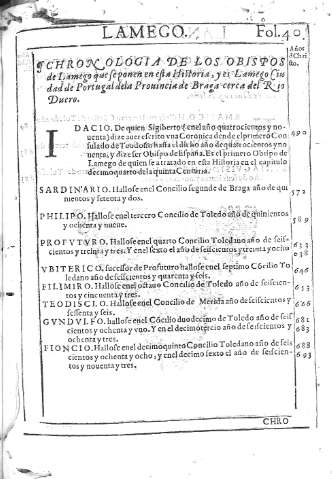 LAMEGO. Fol. 40.
Años d'Christo.
CHRONOLOGIA DE LOS OBISPOS
de Lamego que se ponen en esta Historia, y es Lamego Ciu
dad de Portugal dela Prouincia de Braga cerca del Rio
Duero.
IDACIO. De quien Sigiberto (en el año quatrocientos y no- 490
uenta) dize auer escrito vna Coronica dende el primero Con
sulado de Teodosio hasta el dicho año de quatrocientos y no
uenta, y dize ser Obispo de España. Es el primero Obispo de
Lamego de quien se a tratado en esta Historia en el capitulo
decimoquarto de la quinta Centuria.
SARDINARIO. Hallose en el Concilio segundo de Braga año de qui 572
nientos y setenta y dos.
PHILIPO. Hallose en el tercero Concilio de Toledo año de quinientos 589
y ochenta y nueue.
PROFVTVRO. Hallose en el quarto Concilio Toledano año de seis- 633
cientos y treinta y tres. Y en el sexto el año de seiscientos y treinta y ocho 638
VBITERICO, sucessor de Profuturo hallose en el septimo Cōcilio To 646
ledano año de seiscientos y quarenta y seis.
FILIMIRO. Hallose en el octauo Concilio de Toledo año de seiscien- 653
tos y cincuenta y tres.
TEODISCLO. Hallose en el Concilio de Merida año de seiscientos y 666
sessenta y seis.
GVNDVLFO. hallose en el Cōcilio duodecimo de Toledo año de seis 681
cientos y ochenta y vno. Y en el decimotercio año de seiscientos y 683
ochenta y tres.
FIONCIO. Hallose en el decimoquinto Concilio Toledano año de seis 688
cientos y ochenta y ocho; y en el decimo sexto el año de seiscien- 693
tos y nouenta y tres.
CHRO